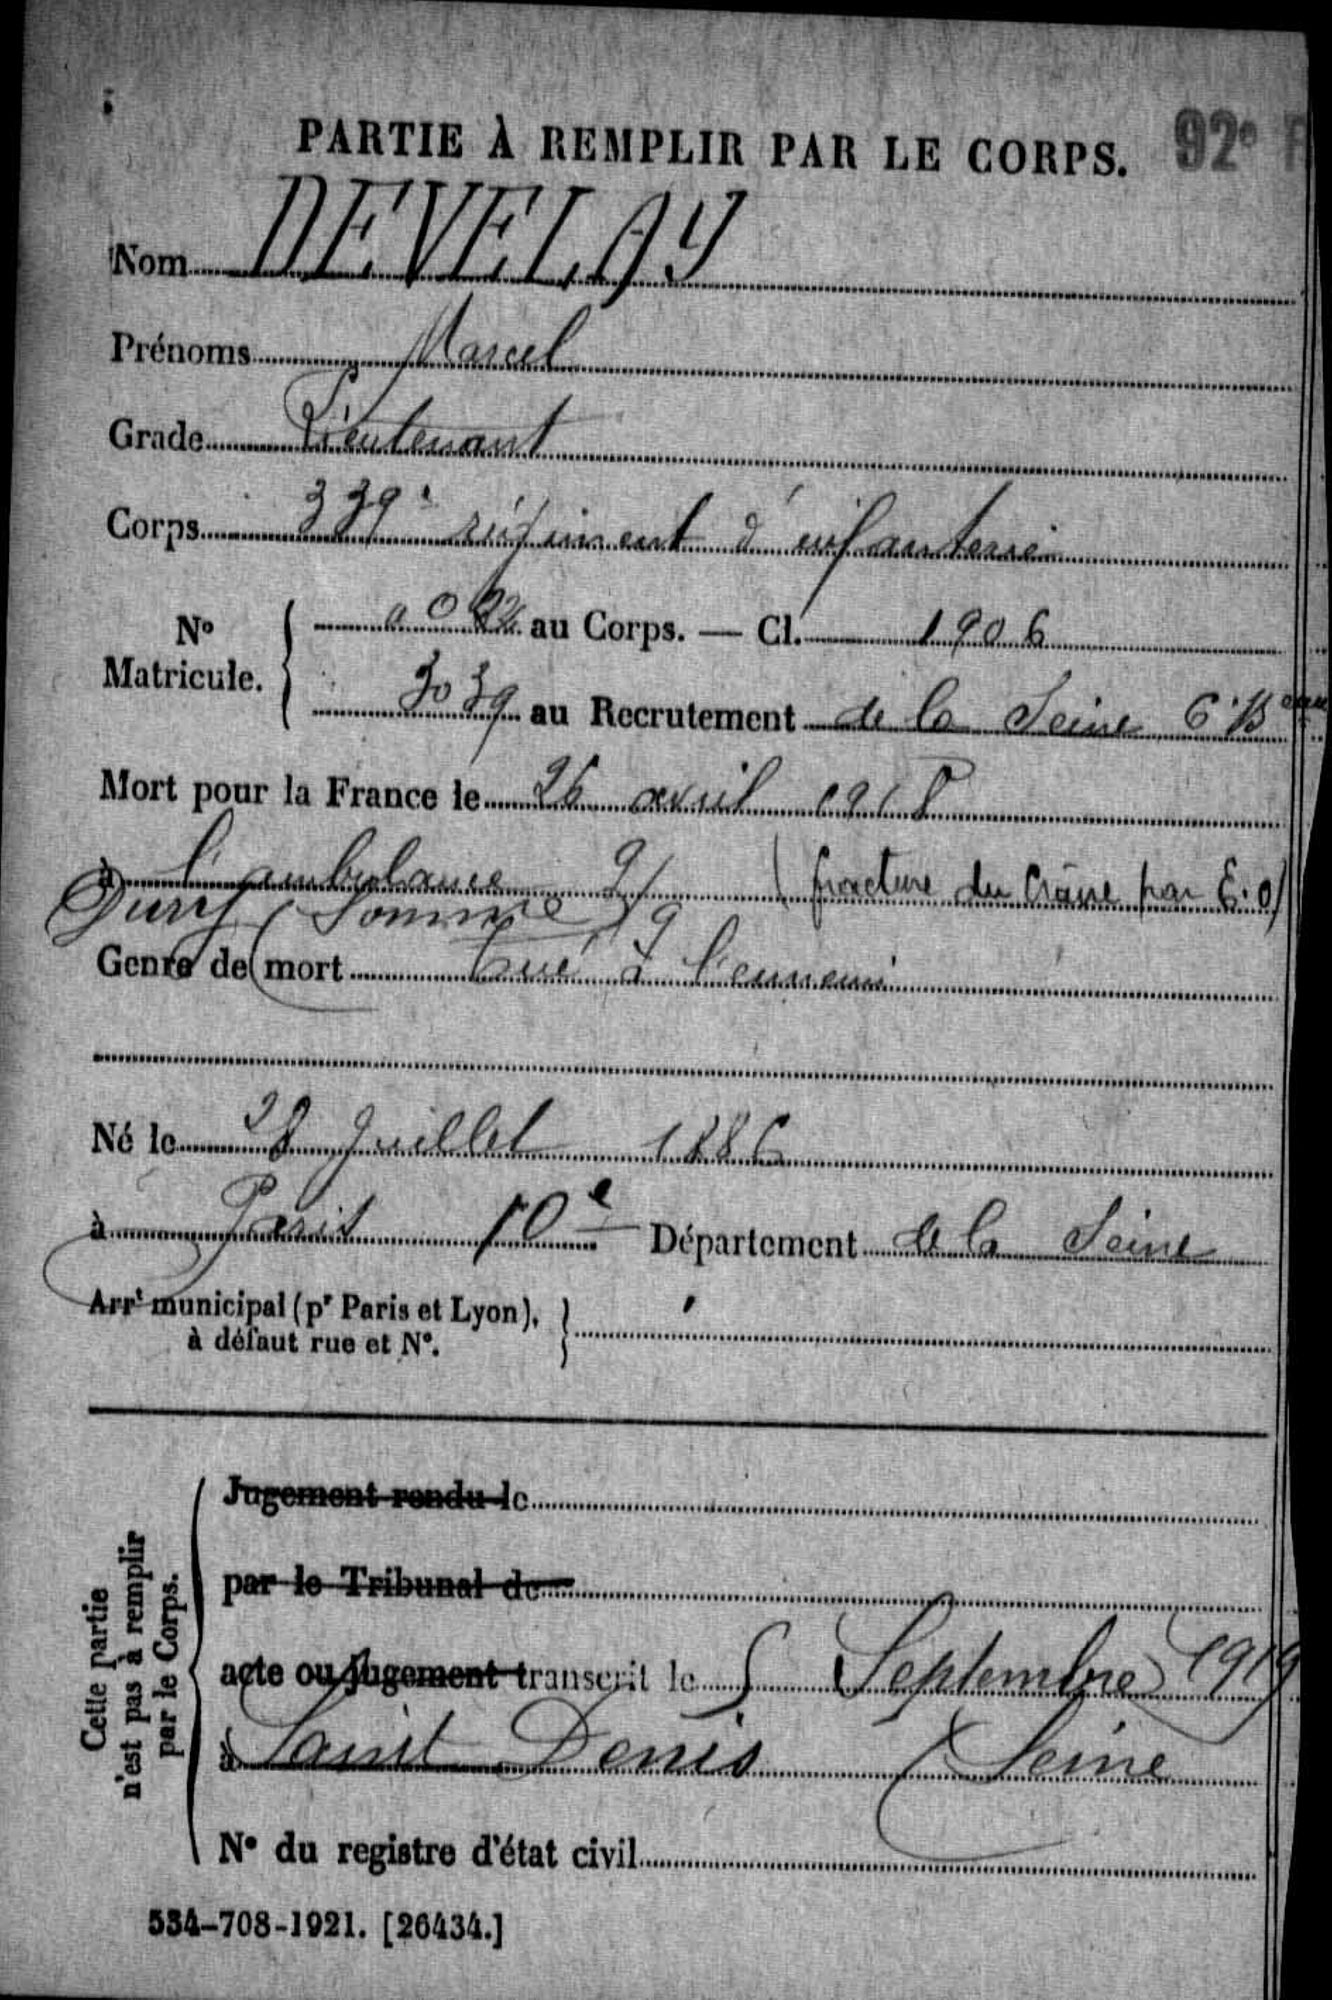 PARTIE À REMPLIR PAR LE CORPS. 92e
Nom DEVELAY
Prénoms Marcel
Grade Lieutenant
Corps 339e régiment d'infanterie
No Matricule. au Corps. — Cl. 1906
3039 au Recrutement de la Seine 6e Beau
Mort pour la France le 26 avril 1918
à l'ambulance 2/9 (fracture du Crâne par E.O)
Dury (Somme)
Genre de mort Tué à l'ennemi
Né le 28 Juillet 1886
à Paris 10e Département de la Seine
Arrt municipal (pr Paris et Lyon),
à défaut rue et No.
Cette partie
n'est pas à remplir
par le Corps.
Jugement rendu le
par le Tribunal de
acte ou jugement transcrit le 5 Septembre 1919
à Saint Denis (Seine
No du registre d'état civil
534-708-1921. [26434.]